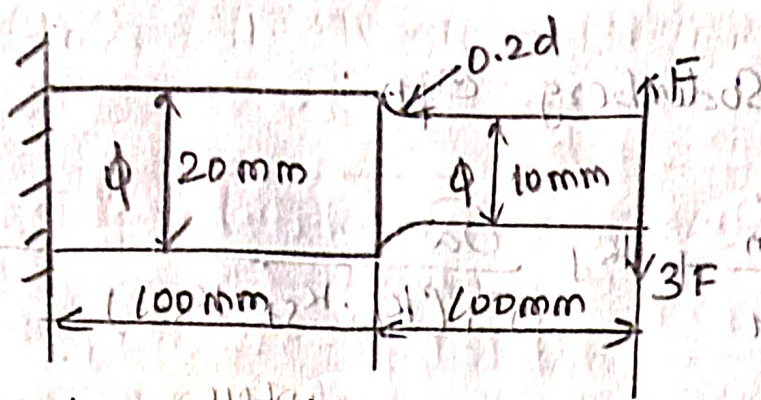 0.2d
F
ϕ 20mm
ϕ 10mm
3F
100mm
100mm